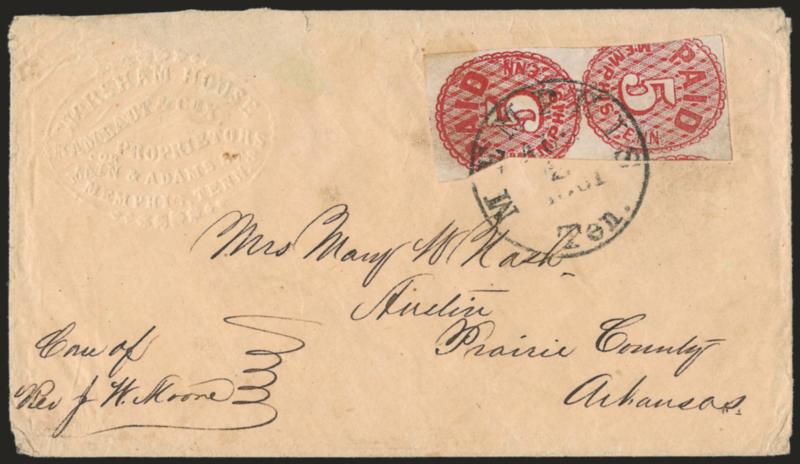 WORSHAM HOUSE
& CO.
PROPRIETORS
MAIN & ADAMS
MEMPHIS, TENN.
PAID
5
MEMPHIS TENN
PAID
5
MEMPHIS TENN
MEMPHIS
Ten.
Mrs Mary W Nash
Austin
Prairie County
Arkansas
Care of
Rev J W. Moore